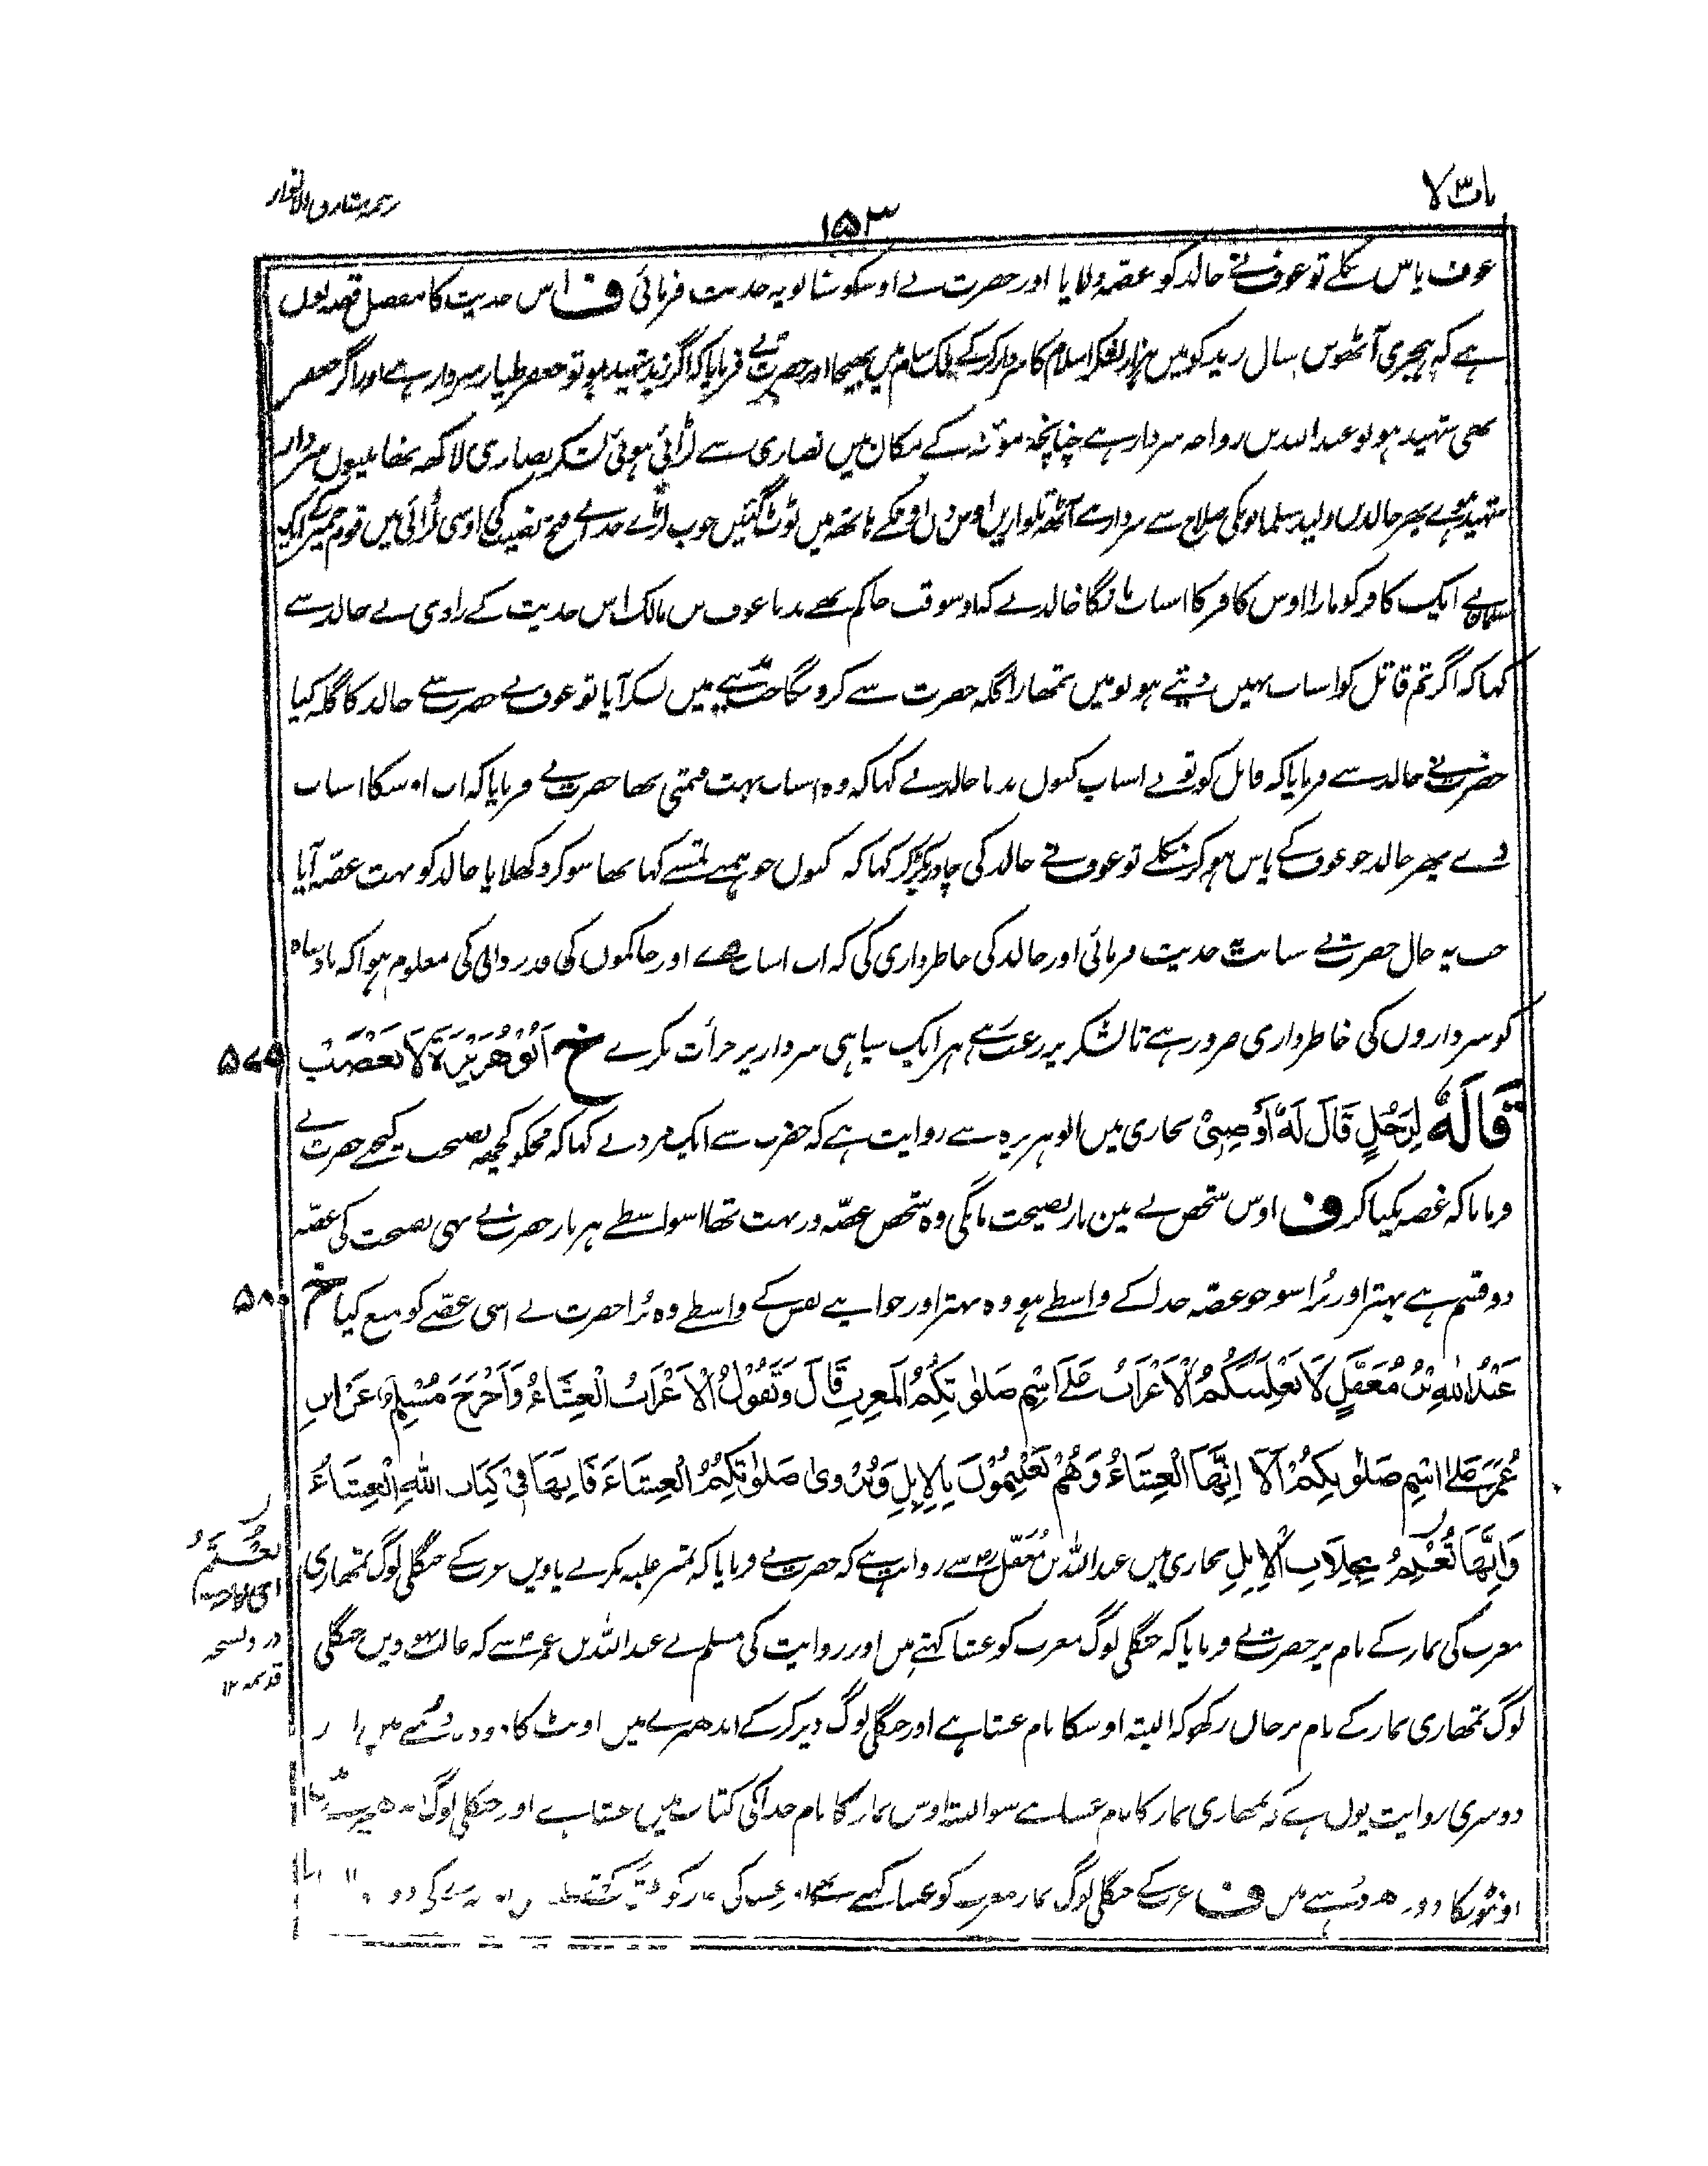 باب ۳ لا
۱۵۳
ترجمہ مشارق الانوار
عوف پاس نکلے تو عوف نے خالد کو غصہ دلایا اور حضرت نے اوسکو سنا تو یہ حدیث فرمائی ف اس حدیث کا مفصل قصہ یوں
ہے کہ ہجری آٹھویں سال زید کو تین ہزار لشکر اسلام کا سردار کر کے ملک شام میں بھیجا اور حضرت نے فرمایا کہ اگر زید شہید ہو تو جعفر طیار سردار ہے اور اگر جعفر
بھی شہید ہو تو عبد اللہ بن رواحہ سردار ہے چنانچہ موتہ کے مکان میں نصاری سے لڑائی ہوئی لشکر نصاری لاکھ تھا تینوں سردار
شہید ہوے پھر خالد بن ولید مسلمانوں کی صلاح سے سردار ہے آٹھ تلواریں اوس دن اونکے ہاتھ میں ٹوٹ گئیں خوب لڑے خدا نے فتح نصیب کی اوسی لڑائی میں قوم حمیر کے ایک
مسلمان نے ایک کافر کو مارا اوس کافر کا اسباب مانگا خالد نے کہ اوسوقت حاکم تھے ندیا عوف بن مالک اس حدیث کے راوی نے خالد سے
کہا کہ اگر تم قاتل کو اسباب نہیں دیتے ہو تو میں تمھارا گلہ حضرت سے کرونگا جب مدینے میں لشکر آیا تو عوف نے حضرت سے خالد کا گلہ کیا
حضرت نے خالد سے فرمایا کہ قاتل کو تونے اسباب کیوں ندیا خالد نے کہا کہ وہ اسباب بہت قیمتی تھا حضرت نے فرمایا کہ اب اوسکا اسباب
دے پھر خالد جو عوف کے پاس ہو کر نکلے تو عوف نے خالد کی چادر پکڑ کر کہا کہ کیوں جو ہمنے تمسے کہا تھا سو کر دکھلایا خالد کو بہت غصہ آیا
جب یہ حال حضرت نے سنا تب حدیث فرمائی اور خالد کی خاطرداری کی کہ اب اسباب ندے اور حاکموں کی قدر دانی کی معلوم ہوا کہ بادشاہ
کو سرداروں کی خاطرداری ضرور ہے تا لشکر پر رعب رہے ہر ایک سپاہی سردار پر جرأت نکرے خ اَبُوْ هُرَيْرَةَ لَا تَغْضَبْ
۵۷۹
قَالَهُ لِرَجُلٍ قَالَ لَهُ اَوْصِنِیْ بخاری میں ابو ہریرہ سے روایت ہے کہ حضرت سے ایک مرد نے کہا کہ مجکو کچھ نصیحت کیجے حضرت نے
فرمایا کہ غصہ نکیا کر ف اوس شخص نے تین بار نصیحت مانگی وہ شخص غصہ ور بہت تھا اسواسطے ہر بار حضرت نے یہی نصیحت کی غصہ
دو قسم ہے بہتر اور بُرا سو جو غصہ خدا کے واسطے ہو وہ بہتر اور جو اپنے نفس کے واسطے وہ بُرا حضرت نے اسی غصے کو منع کیا خ
۵۸۰
عَبْدُ اللهِ بْنُ مُغَفَّلٍ لَا تَغْلِبَنَّكُمُ الْاَعْرَابُ عَلٰى اسْمِ صَلٰوتِكُمُ الْمَغْرِبِ قَالَ وَتَقُوْلُ الْاَعْرَابُ الْعِشَاءُ وَاَخْرَجَ مُسْلِمٌ عَنِ ابْنِ
عُمَرَ عَلٰى اسْمِ صَلٰوتِكُمْ اَلَا اِنَّهَا الْعِشَاءُ وَهُمْ يُعْتِمُوْنَ بِالْاِبِلِ وَيُرْوٰى صَلٰوتِكُمُ الْعِشَاءَ فَاِنَّهَا فِیْ كِتَابِ اللهِ الْعِشَاءُ
وَاِنَّهَا تُعْتِمُ بِحِلَابِ الْاِبِلِ بخاری میں عبد اللہ بن مغفل سے روایت ہے کہ حضرت نے فرمایا کہ تمپر غلبہ نکرنے پاویں عرب کے جنگلی لوگ تمھاری
مغرب کی نماز کے نام پر حضرت نے فرمایا کہ جنگلی لوگ مغرب کو عشا کہتے ہیں اور روایت کی مسلم نے عبد اللہ بن عمر سے کہ غالب نہوویں جنگلی
در نسخہ
قدیمہ ۱۲
لوگ تمھاری نماز کے نام پر جان رکھو کہ البتہ اوسکا نام عشا ہے اور جنگلی لوگ دیر کر کے اندھیرے میں اونٹ کا دودھ
دوسری روایت یوں ہے کہ تمھاری نماز کا نام عشا ہے سو البتہ اوس نماز کا نام خدا کی کتاب میں عشا ہے اور جنگلی لوگ
اونٹوں کا دودھ دوہتے ہیں ف عرب کے جنگلی لوگ نماز مغرب کو عشا کہتے تھے اور عشا کی نماز کو